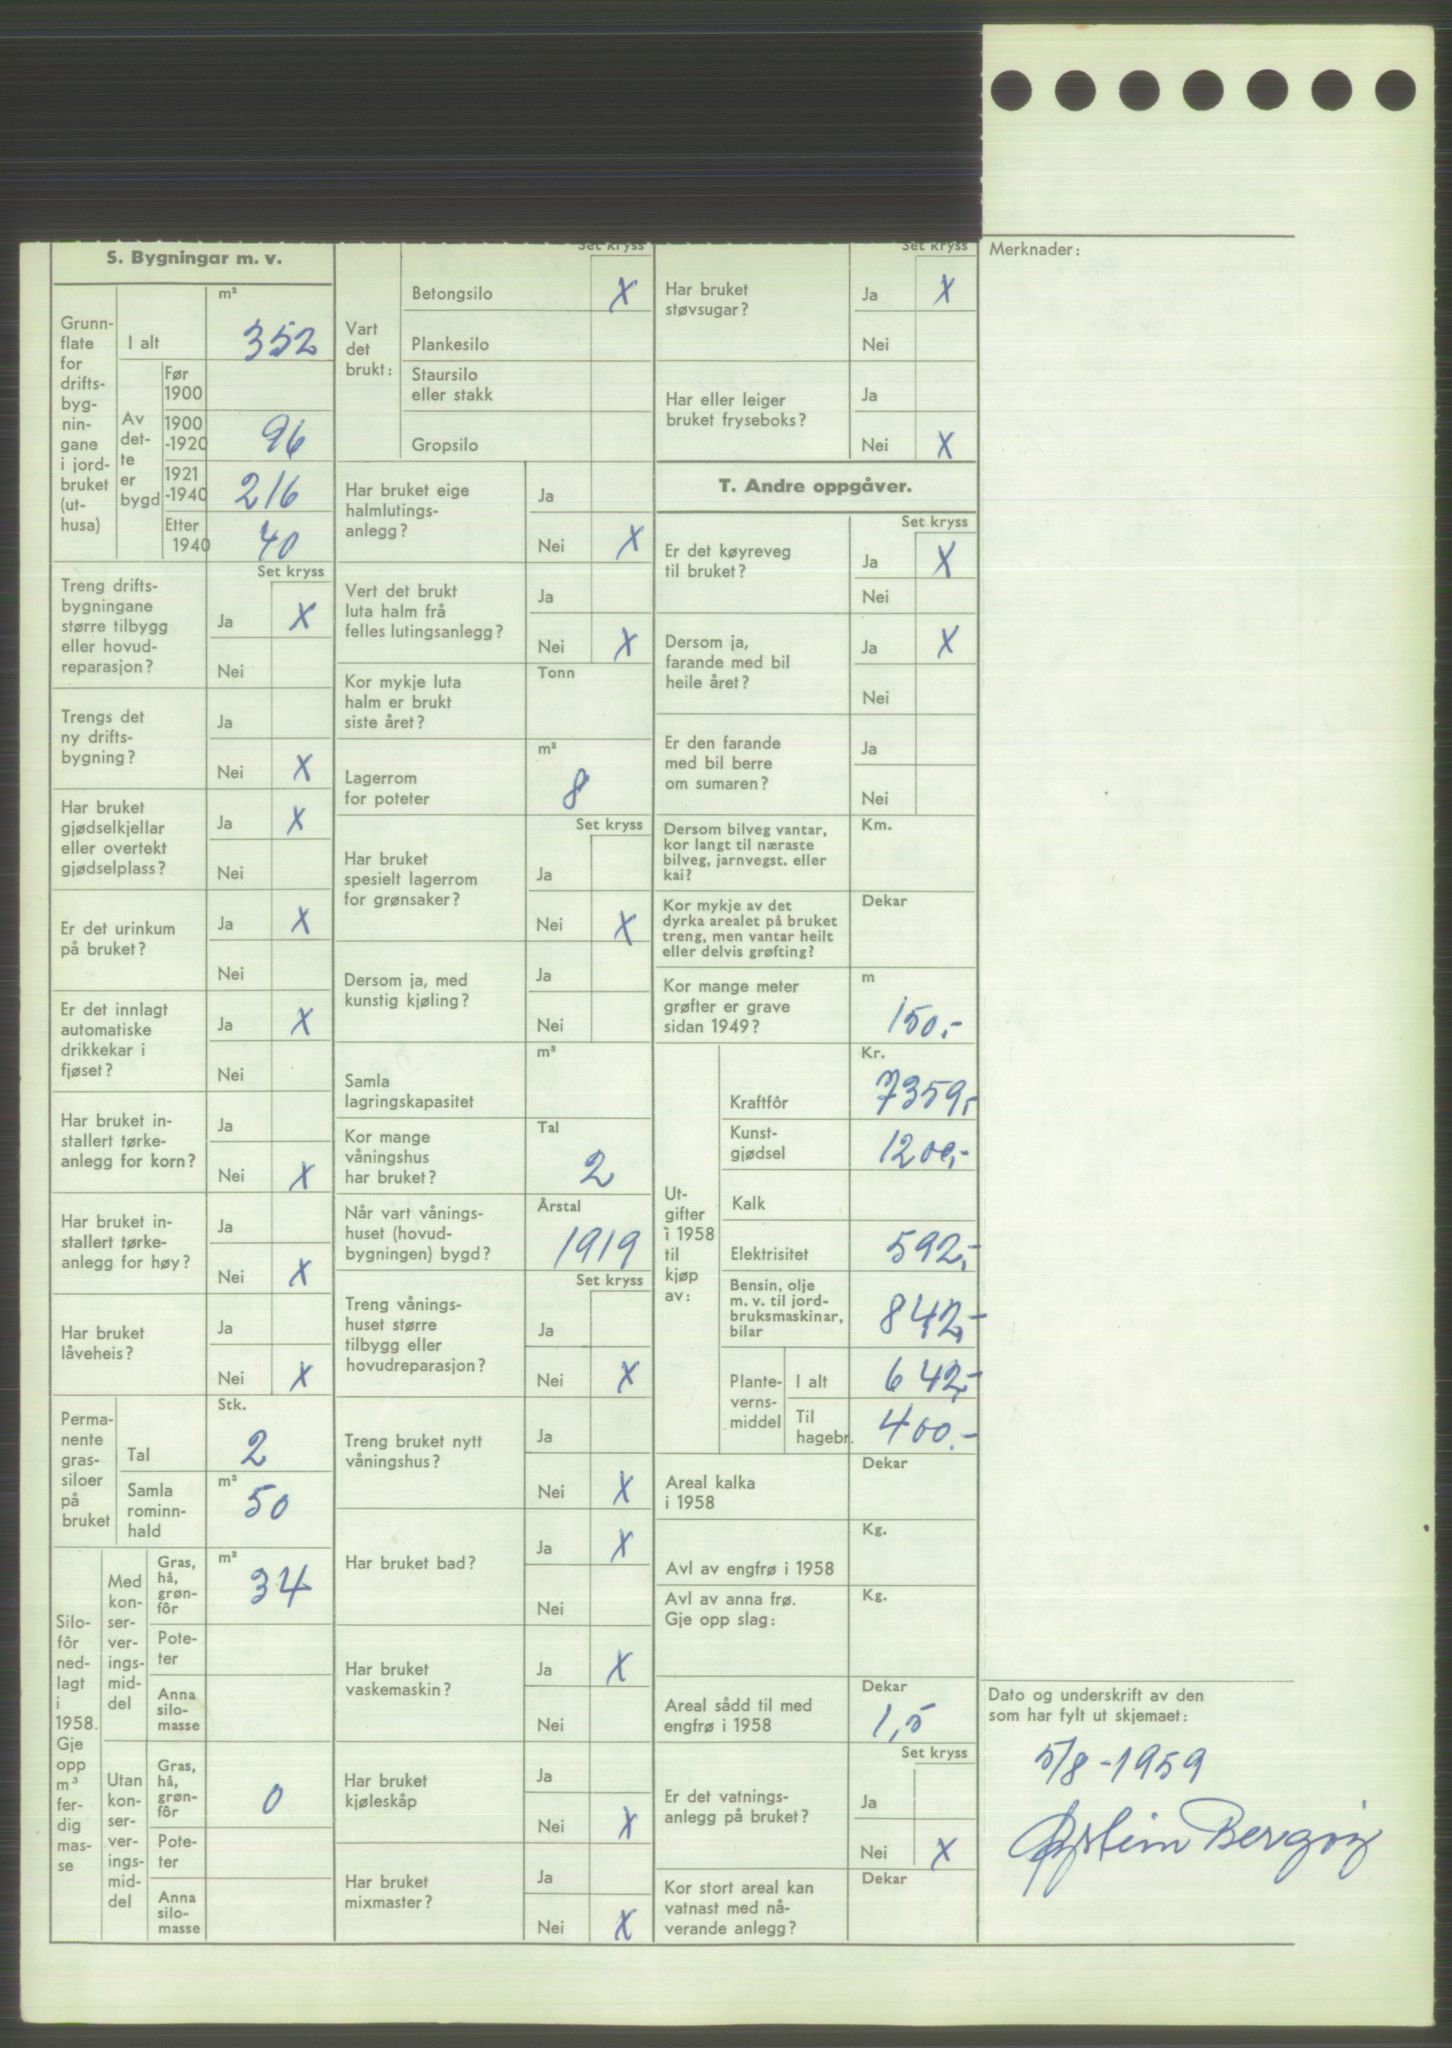 S. Bygningar m. v.
Grunn-
flate
for
drifts-
byg-
nin-
gane
i jord-
bruket
(ut-
husa)
m²
I alt 352
Av
det-
te
er
bygd
Før
1900
1900
-1920 96
1921
-1940 216
Etter
1940 40
Set kryss
Treng drifts-
bygningane
større tilbygg
eller hovud-
reparasjon?
Ja X
Nei
Trengs det
ny drifts-
bygning?
Ja
Nei X
Har bruket
gjødselkjellar
eller overtekt
gjødselplass?
Ja X
Nei
Er det urinkum
på bruket?
Ja X
Nei
Er det innlagt
automatiske
drikkekar i
fjøset?
Ja X
Nei
Har bruket in-
stallert tørke-
anlegg for korn?
Ja
Nei X
Har bruket in-
stallert tørke-
anlegg for høy?
Ja
Nei X
Har bruket
låveheis?
Ja
Nei X
Perma-
nente
gras-
siloer
på
bruket
Stk.
Tal 2
m³
Samla
rominn-
hald
50
Silo-
fôr
ned-
lagt
i
1958.
Gje
opp
m³
fer-
dig
mas-
se
Med
kon-
ser-
ver-
ings-
mid-
del
Gras,
hå,
grøn-
fôr
m³
34
Pote-
ter
Anna
silo-
masse
Utan
kon-
ser-
ver-
ings-
mid-
del
Gras,
hå,
grøn-
fôr
0
Pote-
ter
Anna
silo-
masse
Set kryss
Vart
det
brukt:
Betongsilo X
Plankesilo
Staursilo
eller stakk
Gropsilo
Har bruket eige
halmlutings-
anlegg?
Ja
Nei X
Vert det brukt
luta halm frå
felles lutingsanlegg?
Ja
Nei X
Kor mykje luta
halm er brukt
siste året?
Tonn
Lagerrom
for poteter
m²
8
Set kryss
Har bruket
spesielt lagerrom
for grønsaker?
Ja
Nei X
Dersom ja, med
kunstig kjøling?
Ja
Nei
Samla
lagringskapasitet
m³
Kor mange
våningshus
har bruket?
Tal
2
Når vart vånings-
huset (hovud-
bygningen) bygd?
Årstal
1919
Set kryss
Treng vånings-
huset større
tilbygg eller
hovudreparasjon?
Ja
Nei X
Treng bruket nytt
våningshus?
Ja
Nei X
Har bruket bad?
Ja X
Nei
Har bruket
vaskemaskin?
Ja X
Nei
Har bruket
kjøleskåp
Ja
Nei X
Har bruket
mixmaster?
Ja
Nei X
Set kryss
Har bruket
støvsugar?
Ja X
Nei
Har eller leiger
bruket fryseboks?
Ja
Nei X
T. Andre oppgåver.
Set kryss
Er det køyreveg
til bruket?
Ja X
Nei
Dersom ja,
farande med bil
heile året?
Ja X
Nei
Er den farande
med bil berre
om sumaren?
Ja
Nei
Dersom bilveg vantar,
kor langt til næraste
bilveg, jarnvegst. eller
kai?
Km.
Kor mykje av det
dyrka arealet på bruket
treng, men vantar heilt
eller delvis grøfting?
Dekar
Kor mange meter
grøfter er grave
sidan 1949?
m
150,-
Ut-
gifter
i 1958
til
kjøp
av:
Kr.
Kraftfôr 7359,-
Kunst-
gjødsel 1200,-
Kalk
Elektrisitet 592,-
Bensin, olje
m. v. til jord-
bruksmaskinar,
bilar
842,-
Plante-
verns-
middel
I alt 642,-
Til
hagebr. 400.-
Areal kalka
i 1958
Dekar
Avl av engfrø i 1958
Kg.
Avl av anna frø.
Gje opp slag:
Kg.
Areal sådd til med
engfrø i 1958
Dekar
1,5
Set kryss
Er det vatnings-
anlegg på bruket?
Ja
Nei X
Kor stort areal kan
vatnast med nå-
verande anlegg?
Dekar
Merknader:
Dato og underskrift av den
som har fylt ut skjemaet:
5/8 - 1959
Øystein Bergøy